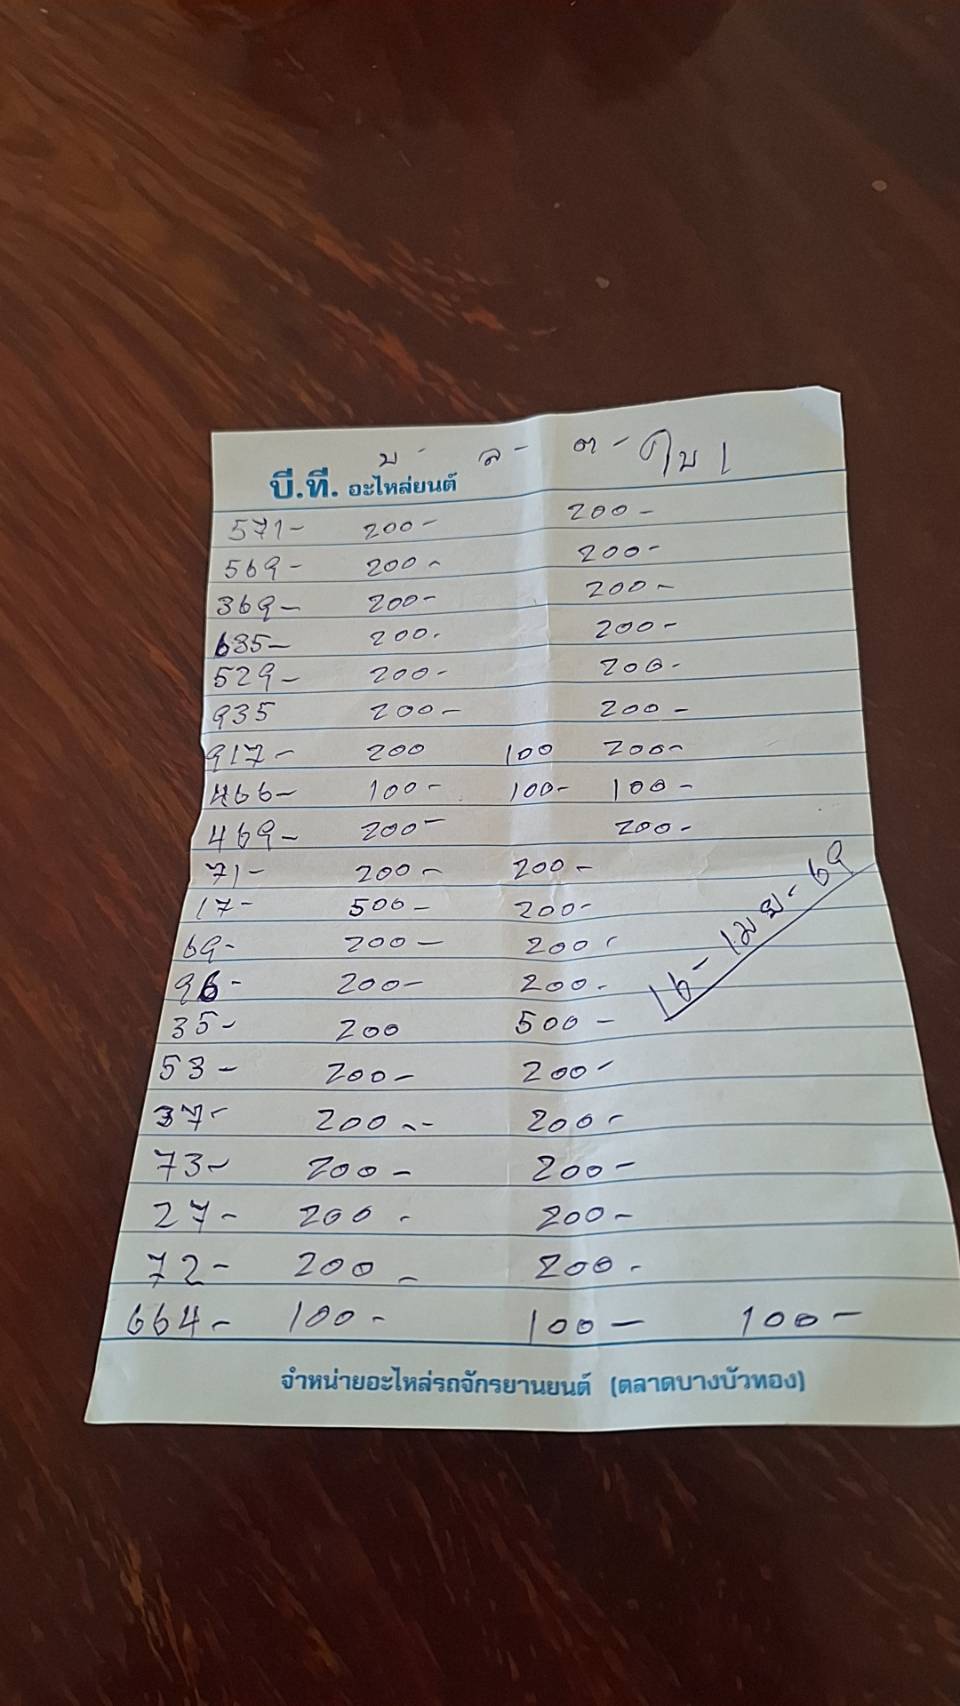 บ - ล - ต - ใบ 1
บี.ที. อะไหล่ยนต์
571- 200- 200-
569- 200- 200-
369- 200- 200-
635- 200- 200-
529- 200- 200-
935 200- 200-
917- 200 100 200-
466- 100- 100- 100-
469- 200- 200-
71- 200- 200-
17- 500- 200-
69- 200- 200-
96- 200- 200-
35- 200 500-
53- 200- 200-
37- 200-- 200-
73- 200- 200-
27- 200- 200-
72- 200- 200-
664- 100- 100- 100-
16-เมย-69
จำหน่ายอะไหล่รถจักรยานยนต์ (ตลาดบางบัวทอง)